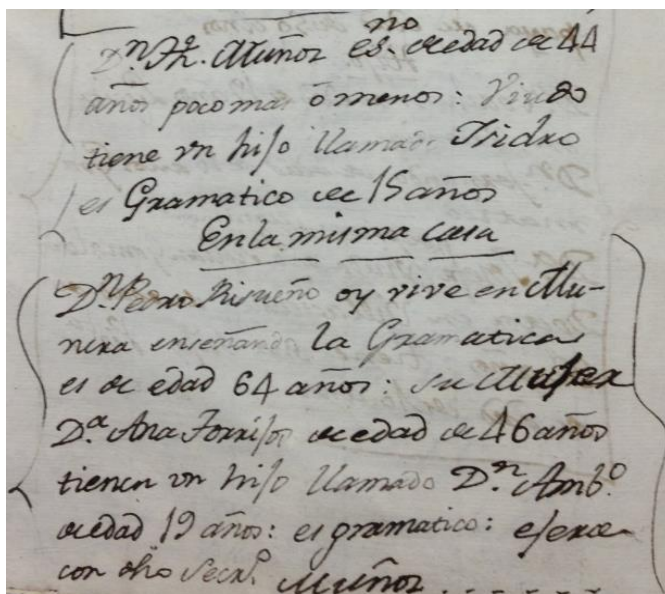 no
Dn. Fo. Muñoz es de edad de 44
años poco mas ó menos: Viudo
tiene vn hijo llamado Isidro
es Gramatico de 15 años
En la misma casa
Dn. Pedro Risueño oy vive en Mu-
nera enseñando la Gramatica
es de edad 64 años: su Muger
Da. Ana Torrijos de edad de 46 años
tienen vn hijo llamado Dn. Ambo.
de edad 19 años: es gramatico: ejerce
con dho Secro. Muñoz